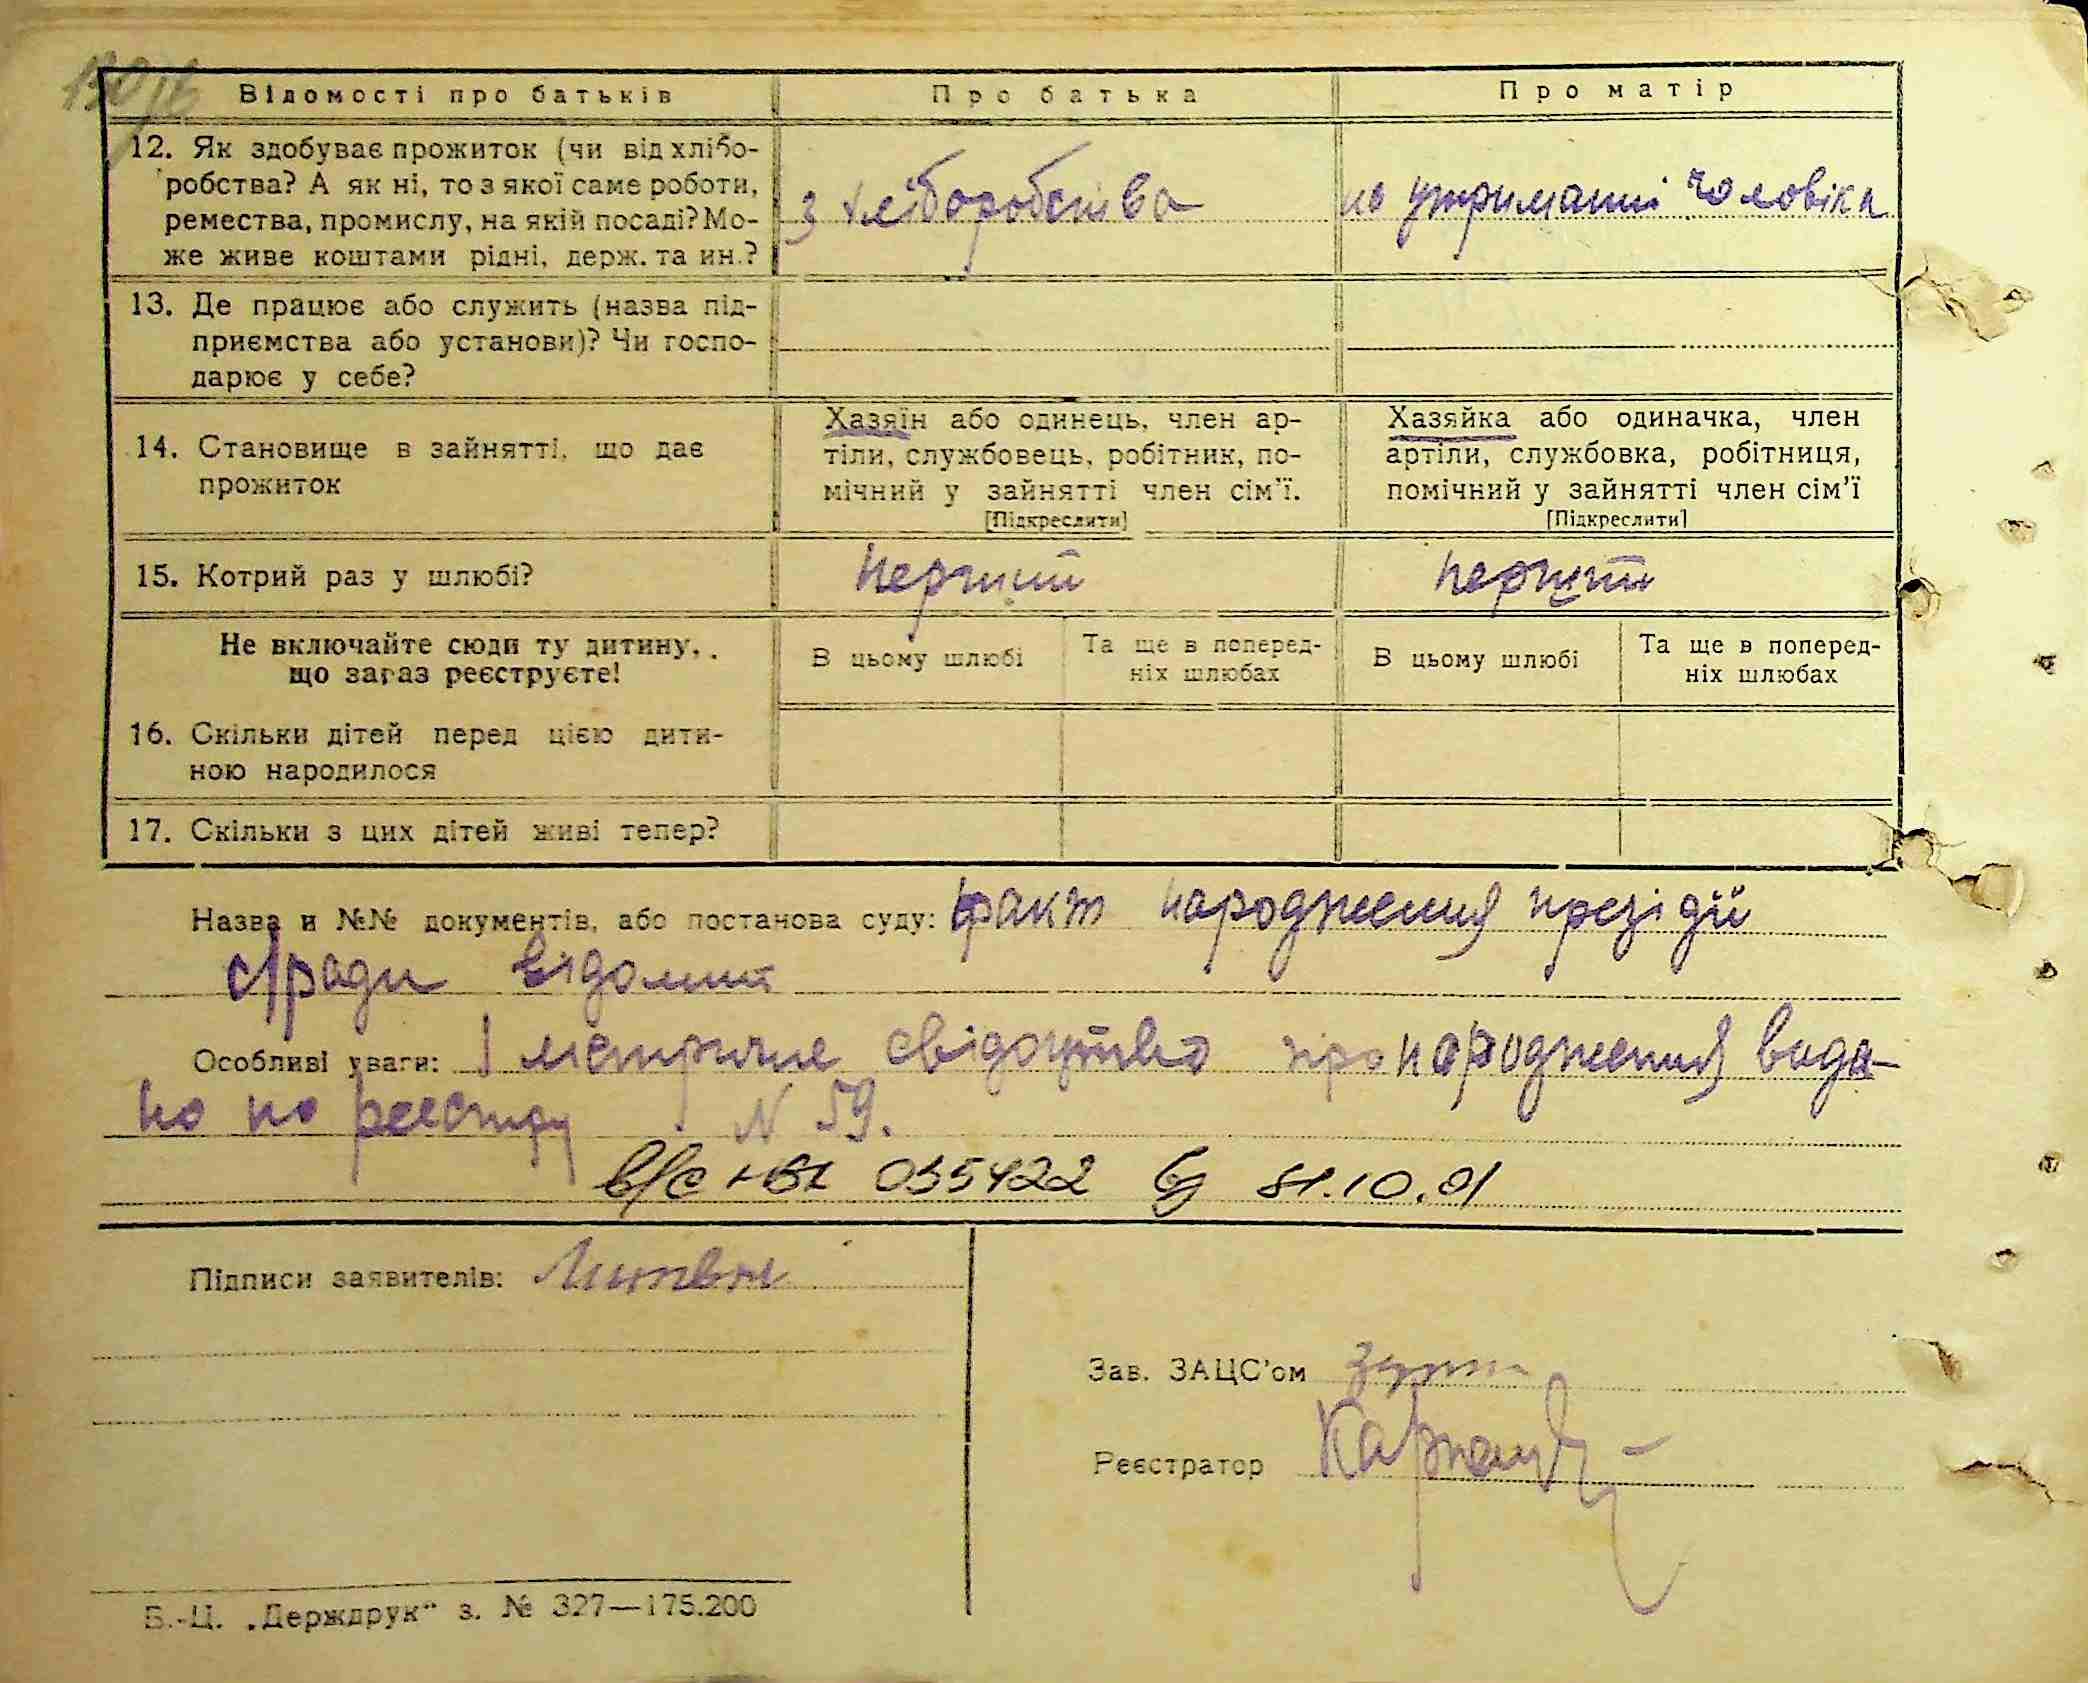 Відомості про батьків
Про батька
Про матір
12. Як здобуває прожиток (чи від хлібо-
робства? А як ні, то з якої саме роботи,
ремества, промислу, на якій посаді? Мо-
же живе коштами рідні, держ. та ин.?
з хліборобства
на утриманні чоловіка
13. Де працює або служить (назва під-
приємства або установи)? Чи госпо-
дарює у себе?
14. Становище в зайнятті, що дає
прожиток
Хазяїн або одинець, член ар-
тіли, службовець, робітник, по-
мічний у зайнятті член сім'ї.
[Підкреслити]
Хазяйка або одиначка, член
артіли, службовка, робітниця,
помічний у зайнятті член сім'ї
[Підкреслити]
15. Котрий раз у шлюбі?
перший
перший
Не включайте сюди ту дитину,
що зараз реєструєте!
В цьому шлюбі
Та ще в поперед-
ніх шлюбах
В цьому шлюбі
Та ще в поперед-
ніх шлюбах
16. Скільки дітей перед цією дити-
ною народилося
17. Скільки з цих дітей живі тепер?
Назва и №№ документів, або постанова суду: факт народження презідії
с/ради відомий
Особливі уваги: метричне свідоцтво про народження вида-
но по реєстру N 59.
035422
Підписи заявителів: Литвин
Зав. ЗАЦС'ом
Реєстратор
Б.-Ц. „Держдрук" з. № 327—175.200